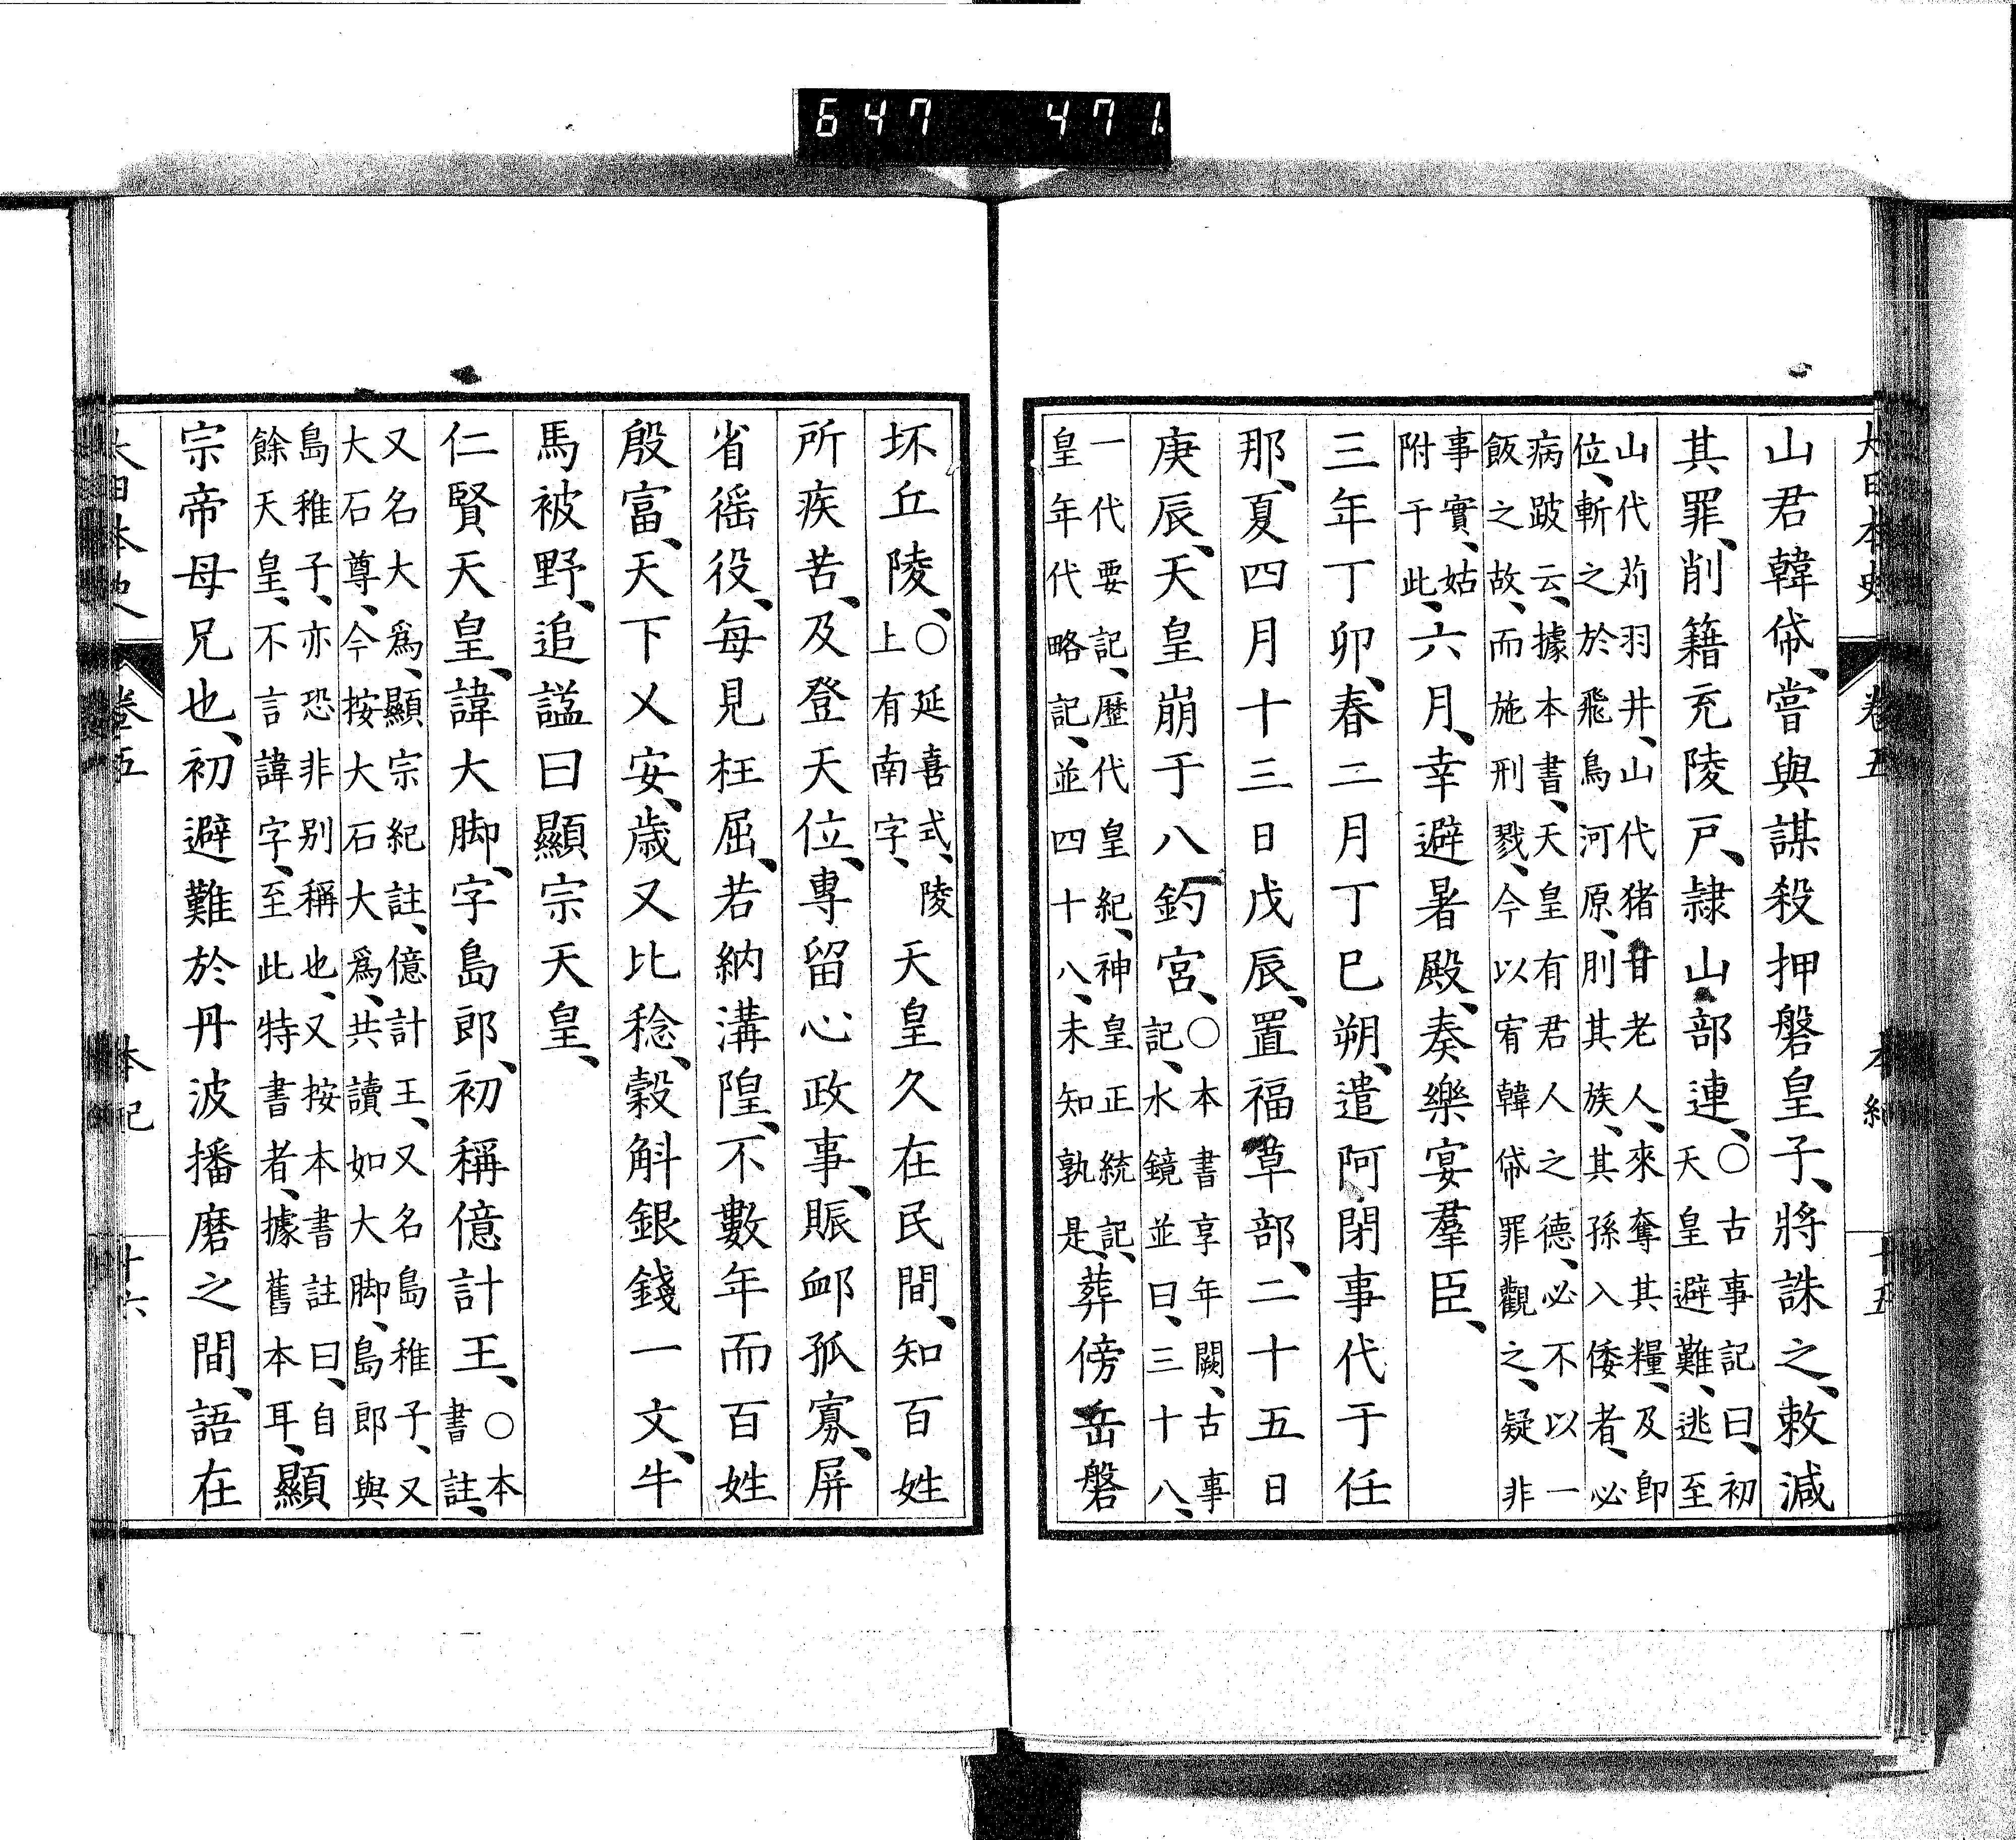 647 471
大日本史 卷五 本紀 十五
山君韓帒、嘗與謀殺押磐皇子、將誅之、敕減
其罪、削籍充陵戸、隷山部連、○古事記曰、初天皇避難、逃至
山代苅羽井、山代猪甘老人、來奪其糧、及卽位、斬之於飛鳥河原、刖其族、其孫入倭者、必
病跛云、據本書、天皇有君人之德、必不以一飯之故、而施刑戮、今以宥韓帒罪觀之、疑非
事實、姑附于此、六月、幸避暑殿、奏樂宴羣臣、
三年丁卯、春二月丁巳朔、遣阿閉事代于任
那、夏四月十三日戊辰、置福草部、二十五日
庚辰、天皇崩于八釣宮、○本書享年闕、古事記、水鏡並曰、三十八、
一代要記、歷代皇紀、神皇正統記、皇年代略記、並四十八、未知孰是、葬傍岳磐
坏丘陵、○延喜式、陵上有南字、天皇久在民間、知百姓
所疾苦、及登天位、專留心政事、賑卹孤寡、屏
省徭役、每見枉屈、若納溝隍、不數年而百姓
殷富、天下乂安、歲又比稔、穀斛銀錢一文、牛
馬被野、追謚曰顯宗天皇、
仁賢天皇、諱大脚、字島郎、初稱億計王、○本書註、
又名大爲、顯宗紀註、億計王、又名島稚子、又大石尊、今按大石大爲、共讀如大脚、島郎與
島稚子、亦恐非別稱也、又按本書註曰、自餘天皇、不言諱字、至此特書者、據舊本耳、顯
宗帝母兄也、初避難於丹波播磨之間、語在
大日本史 卷五 本紀 十六